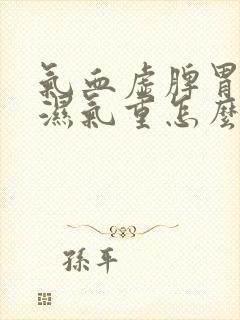 氣血虛脾胃
濕氣重怎麼
孫平